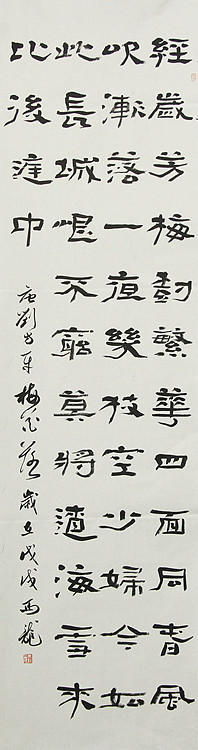 經歲芳梅樹繁華四面同春風
吹漸落一夜幾枝空少婦今如
此長城恨不窮莫將遼海雪來
比後庭中
唐劉方平梅花落歲在戊戌